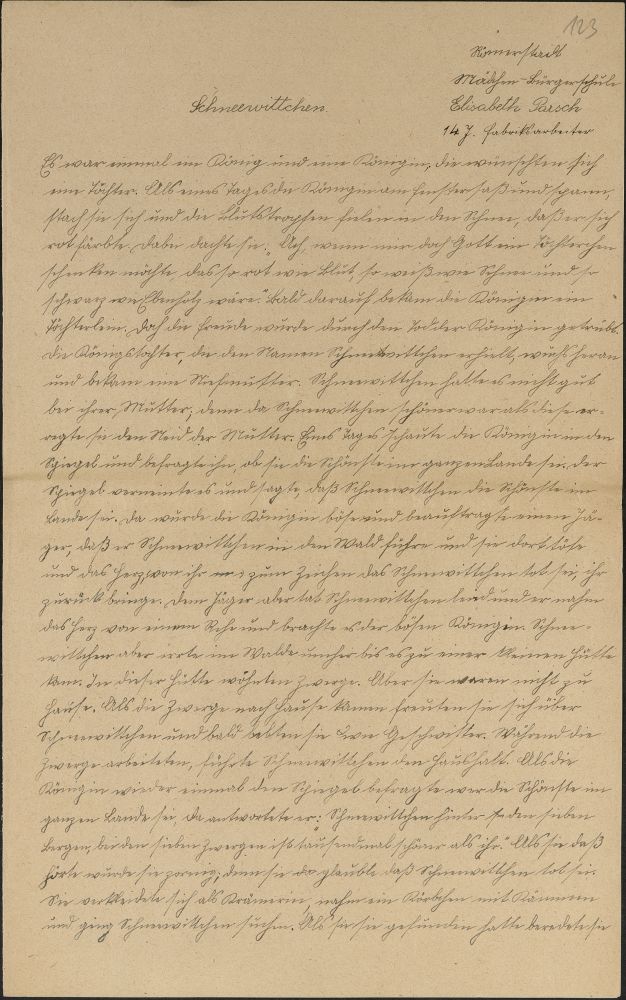 123
Römerstadt
Mädchen-Bürgerschule
Schneewittchen.
Elisabeth Parsch
14 J. Fabriksarbeiter
Es war einmal ein König und eine Königin, die wünschten sich
eine Tochter. Als eines Tages die Königin am Fenster saß und spann,
stach sie sich und die Blutstropfen fielen in den Schnee, daß er sich
rot färbte. Dabei dachte sie: „Ach, wenn mir doch Gott ein Töchterchen
schenken möchte, das so rot wie Blut, so weiß wie Schnee und so
schwarz wie Ebenholz wäre." Bald darauf bekam die Königin ein
Töchterlein. Doch die Freude wurde durch den Tod der Königin getrübt.
Die Königstochter, die den Namen Schneewittchen erhielt, wuchs heran
und bekam eine Stiefmutter. Schneewittchen hatte es nicht gut
bei ihrer Mutter, denn da Schneewittchen schöner war als diese er-
regte sie den Neid der Mutter. Eines Tages schaute die Königin in den
Spiegel und befragte ihn, ob sie die Schönste im ganzen Lande sei, der
Spiegel verneinte es und sagte, daß Schneewittchen die Schönste im
Lande sei. Da wurde die Königin böse und beauftragte einen Jä-
ger, daß er Schneewittchen in den Wald führe und sie dort töte
und das Herz von ihr zum Zeichen das Schneewittchen tot sei, ihr
zurück bringe. Dem Jäger aber tat Schneewittchen leid und er nahm
das Herz von einem Rehe und brachte es der bösen Königin. Schnee-
wittchen aber irrte im Walde umher bis es zu einer kleinen Hütte
kam. In dieser Hütte wohnten Zwerge. Aber sie waren nicht zu
Hause. Als die Zwerge nach Hause kamen freuten sie sich über
Schneewittchen und bald lebten sie wie Geschwister. Während die
Zwerge arbeiteten, führte Schneewittchen den Haushalt. Als die
Königin wieder einmal den Spiegel befragte wer die Schönste im
ganzen Lande sei, da antwortete er: „Schneewittchen hinter den sieben
Bergen, bei den sieben Zwergen ist tausendmal schöner als ihr." Als sie daß
hörte wurde sie zornig, denn sie glaubte daß Schneewittchen tot sei.
Sie verkleidete sich als Krämerin, nahm ein Körbchen mit Kämmen
und ging Schneewittchen suchen. Als sie sie gefunden hatte beredete sie